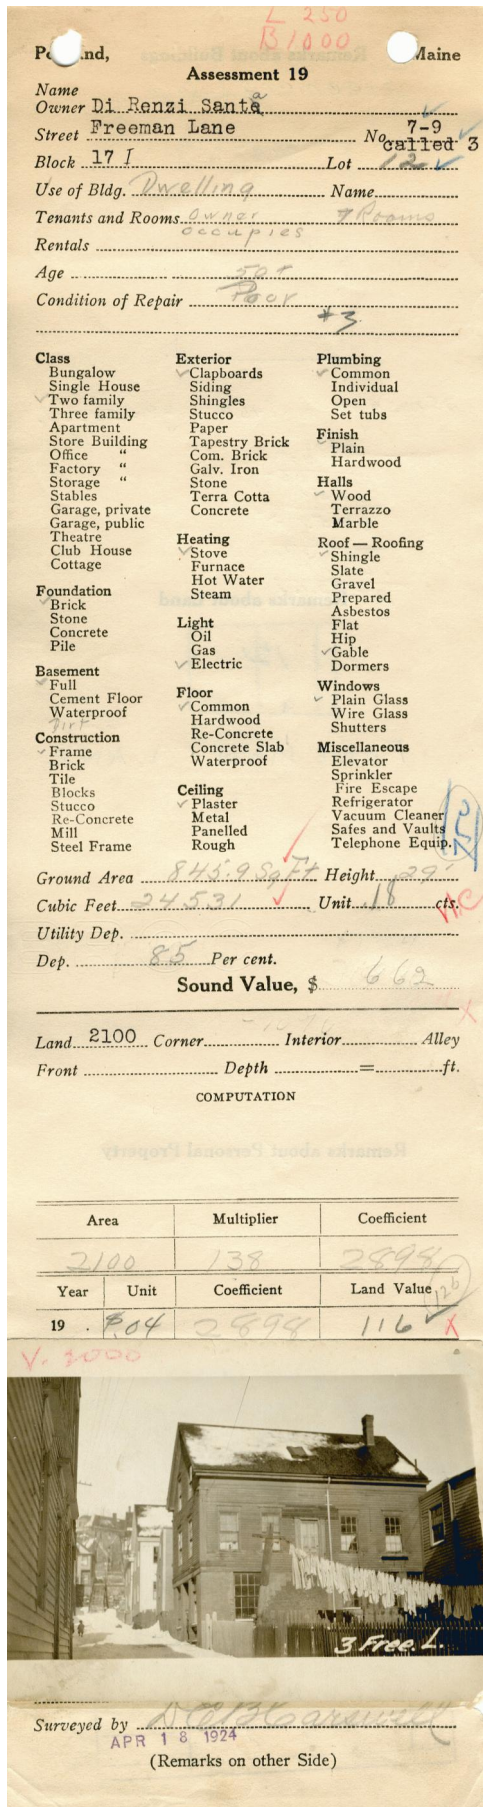 L 250
B 1000
Po nd, Maine
Assessment 19
Name
Owner Di Renzi Santa
Street Freeman Lane No. 7-9
called 3
Block 17 I Lot 12
Use of Bldg. Dwelling Name
Tenants and Rooms owner 7 Rooms
occupies
Rentals
Age 50+
Condition of Repair Poor
+3
Class
Bungalow
Single House
✓ Two family
Three family
Apartment
Store Building
Office "
Factory "
Storage "
Stables
Garage, private
Garage, public
Theatre
Club House
Cottage
Foundation
✓ Brick
Stone
Concrete
Pile
Basement
✓ Full
Cement Floor
Waterproof
Dirt
Construction
✓ Frame
Brick
Tile
Blocks
Stucco
Re-Concrete
Mill
Steel Frame
Exterior
✓ Clapboards
Siding
Shingles
Stucco
Paper
Tapestry Brick
Com. Brick
Galv. Iron
Stone
Terra Cotta
Concrete
Heating
✓ Stove
Furnace
Hot Water
Steam
Light
Oil
Gas
✓ Electric
Floor
✓ Common
Hardwood
Re-Concrete
Concrete Slab
Waterproof
Ceiling
✓ Plaster
Metal
Panelled
Rough
Plumbing
✓ Common
Individual
Open
Set tubs
Finish
✓ Plain
Hardwood
Halls
✓ Wood
Terrazzo
Marble
Roof — Roofing
✓ Shingle
Slate
Gravel
Prepared
Asbestos
Flat
Hip
✓ Gable
Dormers
Windows
✓ Plain Glass
Wire Glass
Shutters
Miscellaneous
Elevator
Sprinkler
Fire Escape
Refrigerator
Vacuum Cleaner
Safes and Vaults
Telephone Equip.
Ground Area 845.9 Sq Ft Height 29'
Cubic Feet 24531 Unit 18 cts.
Utility Dep.
Dep. 85 Per cent.
Sound Value, $ 662
Land 2100 Corner Interior Alley
Front Depth = ft.
COMPUTATION
Area Multiplier Coefficient
2100 138 2898
Year Unit Coefficient Land Value
126
19 . $.04 2898 116 ✓ X
V. 2000
3 Free. L.
Surveyed by D E B Carswell
APR 18 1924
(Remarks on other Side)